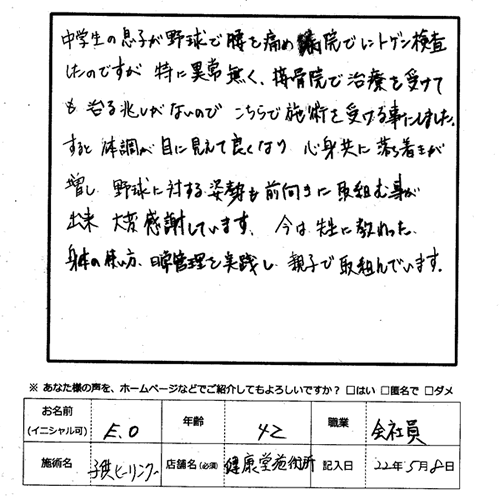 中学生の息子が野球で腰を痛め病院でレントゲン検査
したのですが特に異常無く、接骨院で治療を受けて
も治る兆しがないのでこちらで施術を受ける事にしました。
すると体調が目に見えて良くなり心身共に落ち着きが
増し野球に対する姿勢も前向きに取組む事が
出来大変感謝しています。今は先生に教わった
身体の使い方、日常管理を実践し親子で取組んでいます。
※ あなた様の声を、ホームページなどでご紹介してもよろしいですか？ □はい □匿名で □ダメ
お名前 (イニシャル可) E.O 年齢 42 職業 会社員
施術名 子供ヒーリング 店舗名 (必須) 健康堂施術所 記入日 22年5月8日